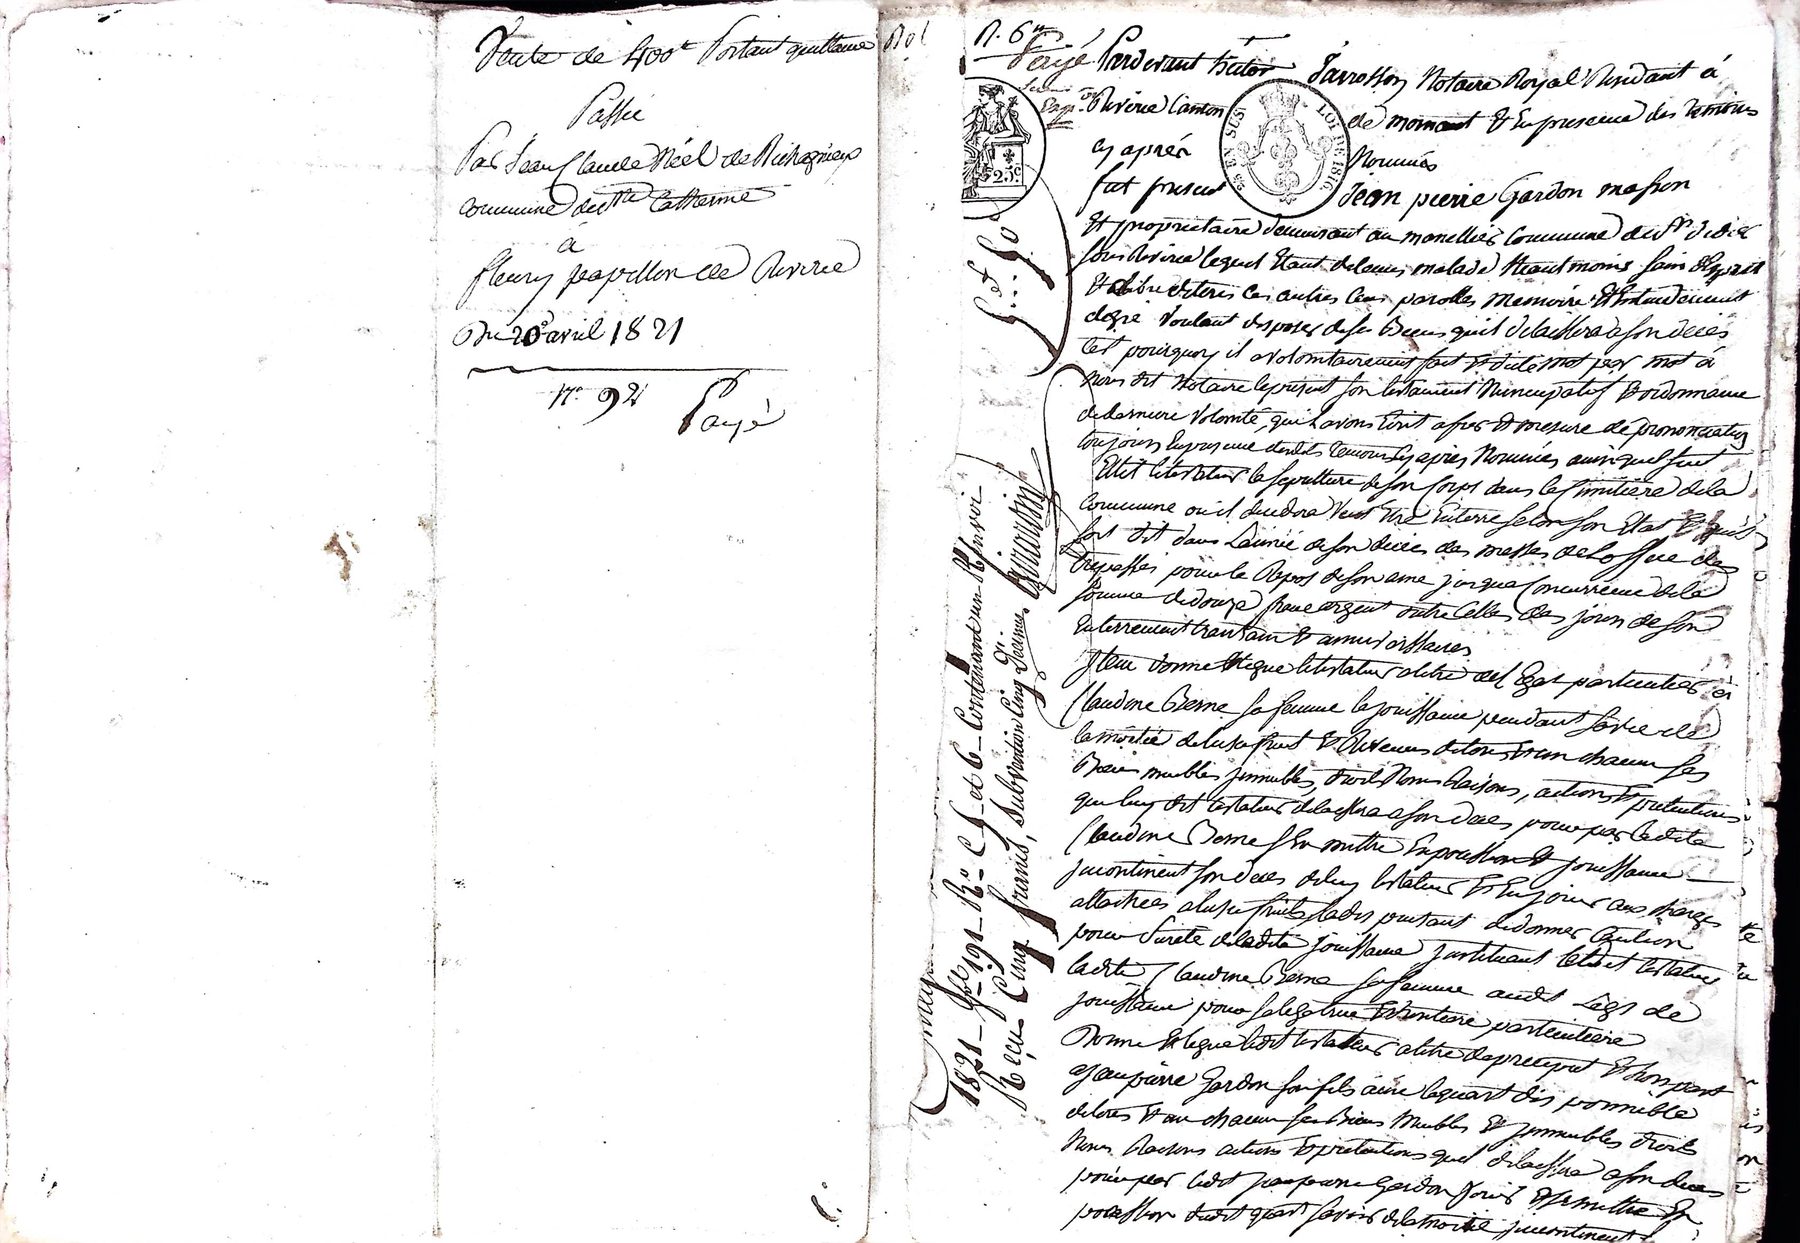 Vente de 400tt Portant quittance
Passée
Par Jean Claude Néel de Richagnieux
commune de Ste Catherine
à
fleury papillon de Riverie
Du 20e avril 1821
N° 92
Payé
Payé
Pardevant hector Jarrosson Notaire Royal Résidant à
Riverie Canton de mornant Et En presence des temoins
cy après Nommés
fut present Jean pierre Gardon masson
Et proprietaire demeurant au Commune de St didier
sous Riverie lequel Etant de lieux malade Neantmoins sain d'Esprit
Et Libre de tous ces autres sens parolles memoire Et Entendement
de gré Voulant disposer de ses Biens quil delaissera a son décès
C'est pourquoy il a volontairement fait Et dicté mot par mot à
Nous dit Notaire le present son testament Nuncupatif Et ordonnance
de derniere Volonté, que Lavons Ecrit a fur Et mesure de prononciation
toujours En presence desdits temoins cy après Nommés ainsi quil suit
Elit le testateur la sepulture de son Corps dans le Cimitiere de la
Commune ou il decedera Veut Etre Enterré selon son Etat Et quil
soit dit dans Lannée de son décès des messes de Loffice des
trepassés pour le Repos de son ame jusques Concurrence de la
somme de douze franc argent outre Celles des jours de son
Enterrement trentain Et anniversaires
Item donne Et legue le testateur a titre de Legat particulier à
Claudine Berne sa femme la jouissance pendant sa vie de
la moitié de lusufruit Et Revenus de tous Et un chacun ses
Biens meubles immeubles, droits Noms Raisons, actions Et pretentions
que luy dit testateur delaissera a son décès pour par ladite
Claudine Berne s'En mettre En possession Et jouissance
incontinent son décès de luy testateur Et En jouir aux charges
attachées a lusufruit sans pourtant de donner Caution
pour Sureté de ladite jouissance instituant ledit testateur
ladite Claudine Berne sa femme audit Legs de
jouissance pour sa legatrice Et heritiere particuliere
Donne Et legue ledit testateur a titre de preciput Et hors part
a Jean pierre Gardon son fils ainé le quart disponnible
de tous Et un chacun ses Biens Meubles Et immeubles droits
Noms Raisons actions Et pretentions quil delaissera a son décès
pour par ledit jean pierre Gardon jouir Et se mettre En
possession dudit quart savoir de la moitié incontinent
1821 f° 191 R° C 5 et 6 Contenant un Renvoi
Reçu Cinq francs, Subvention Cinq Décimes
25c
LOI DE 1816